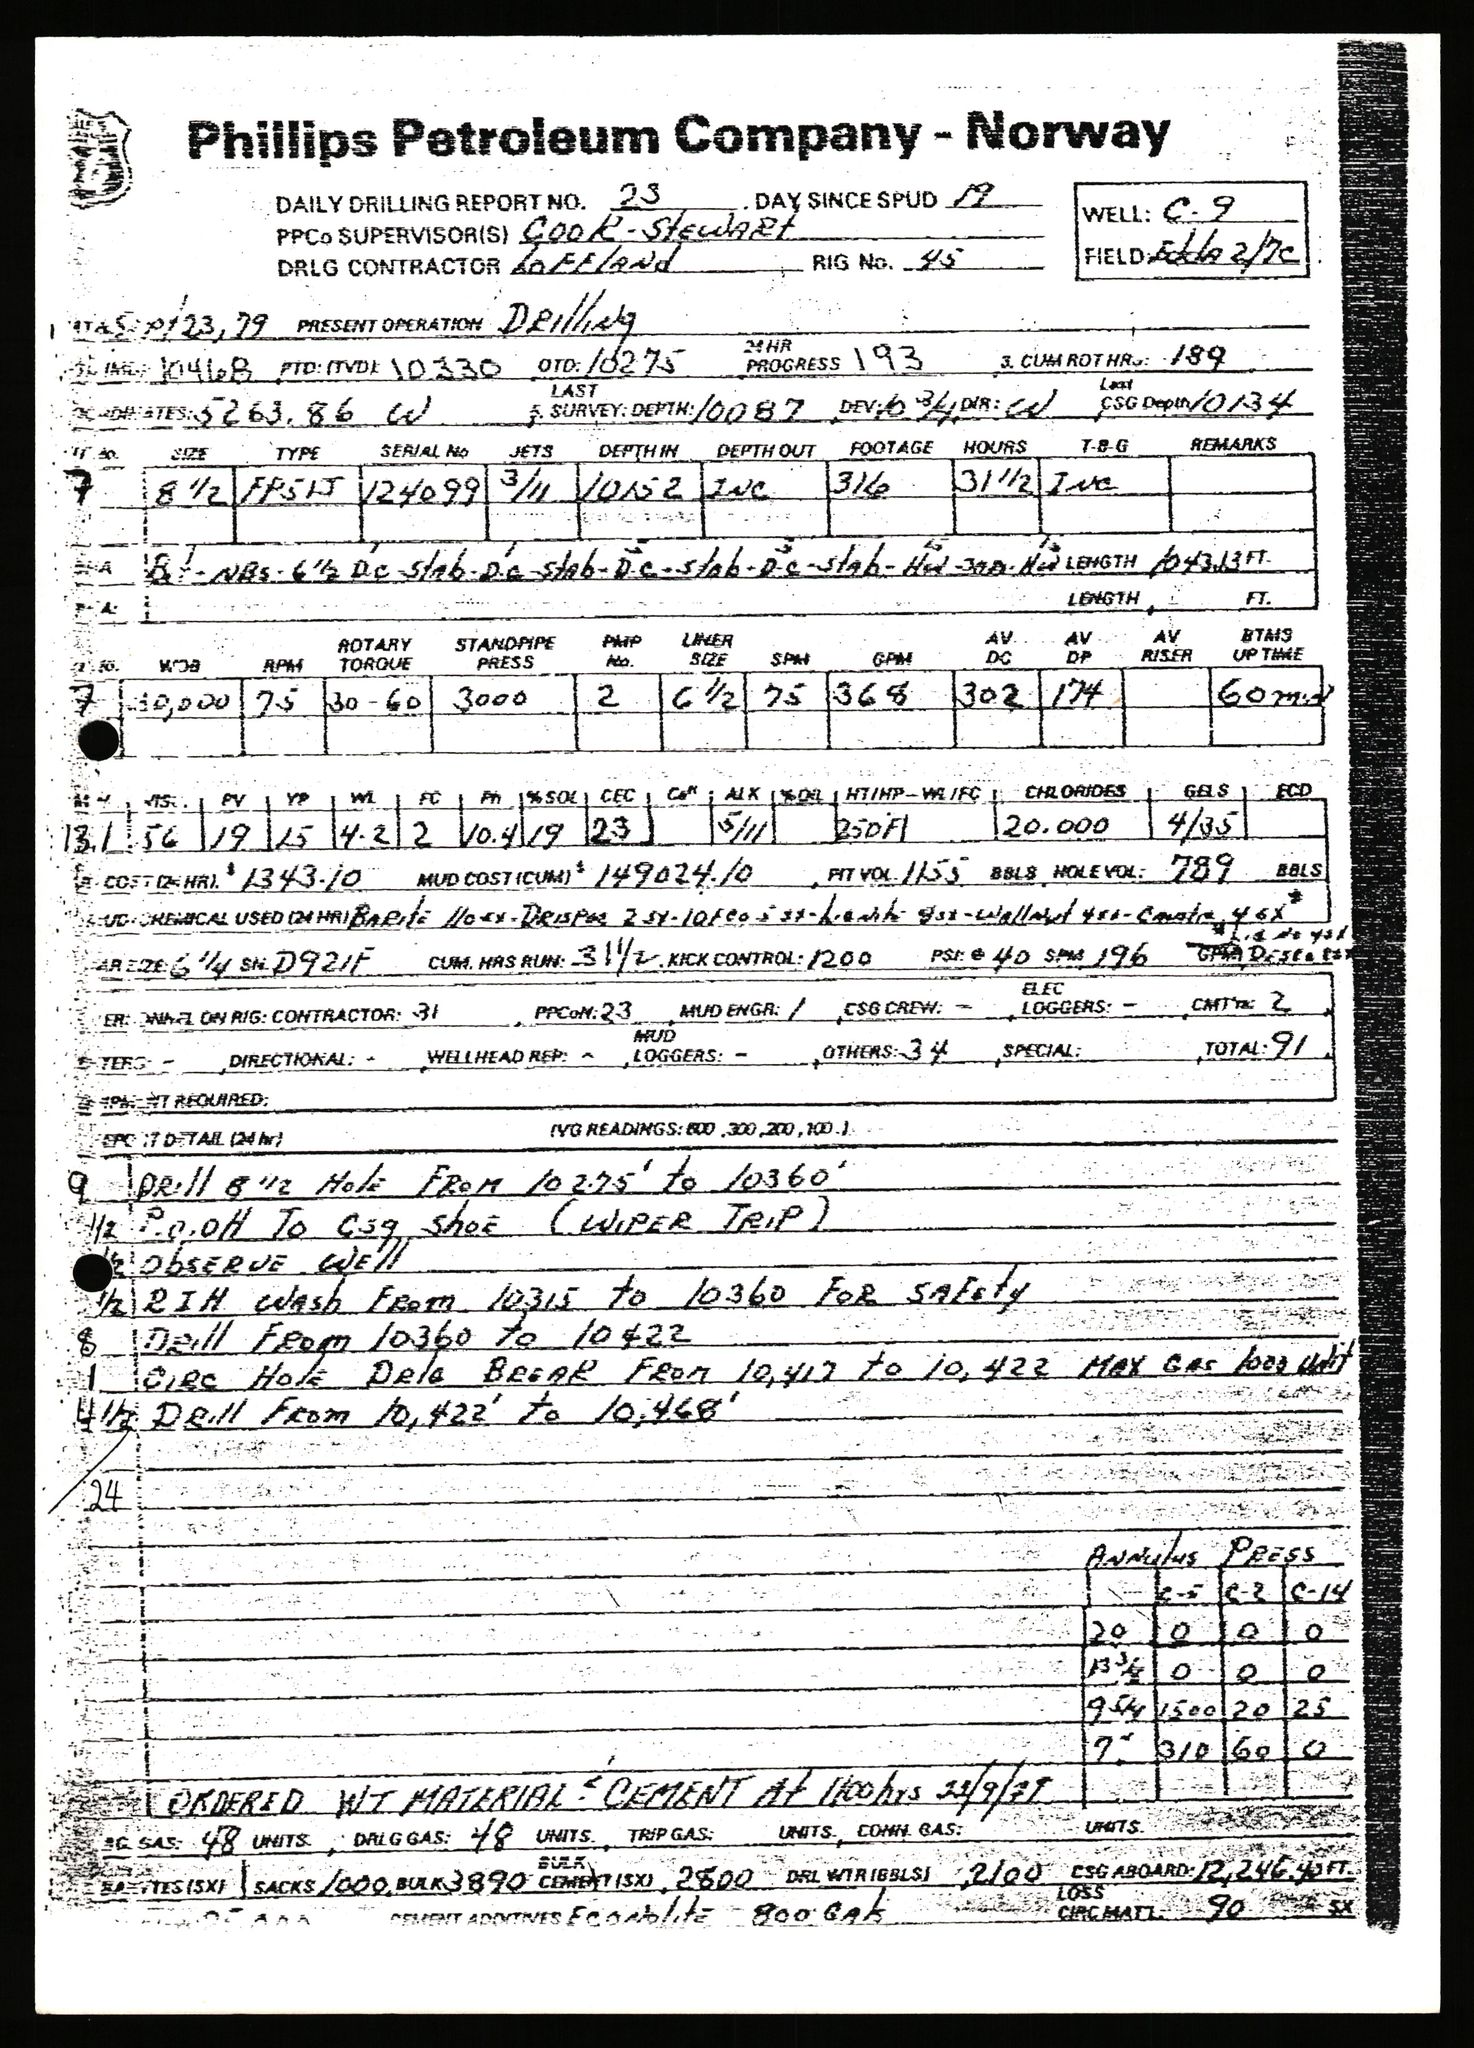 Phillips Petroleum Company - Norway
DAILY DRILLING REPORT NO. 23 DAY SINCE SPUD 19
PPCo SUPERVISOR(S) COOK-STEWART
DRLG CONTRACTOR LOFFLAND RIG No. 45
WELL: C-9
FIELD: Edda 2/7C
23, 79 PRESENT OPERATION DRILLING
10468 PTD: (TVD): 10330 OTD: 10275 24 HR PROGRESS 193 3. CUM ROT HRS: 189
5263.86 W 5. LAST SURVEY: DEPTH: 10087 DEV: 10 3/4 DIR: W Last CSG Depth 10134
No. SIZE TYPE SERIAL No JETS DEPTH IN DEPTH OUT FOOTAGE HOURS T-B-G REMARKS
7 8 1/2 124099 3/11 10152 INC 316 31 1/2 INC
Bit-NBS-6 1/2 DC-Stab-DC-Stab-DC-Stab-DC-Stab-HW-JAR-HW LENGTH 1043.13 FT.
LENGTH FT.
No. WOB RPM ROTARY TORQUE STANDPIPE PRESS PMP No. LINER SIZE SPM GPM AV DC AV DP AV RISER BTMS UP TIME
7 30,000 75 30-60 3000 2 6 1/2 75 368 302 174 60 min
VIS. PV YP WL FC Ph % SOL CEC Ca ALK % OIL HT/HP-WL/FC CHLORIDES GELS ECD
13.1 56 19 15 4.2 2 10.4 19 23 5/11 250F 20.000 4/35
COST (24 HR). $ 1343.10 MUD COST (CUM) $ 149024.10 PIT VOL 1155 BBLS HOLE VOL: 789 BBLS
CHEMICAL USED (24 HR) BARITE 110 sx-DRISPAC 2 sx-
SIZE: 6 1/4 SN. D921F CUM. HRS RUN: 31 1/2 KICK CONTROL: 1200 PSI: @ 40 SPM 196 GPM
ON RIG: CONTRACTOR: 31 PPCoN: 23 MUD ENGR: 1 CSG CREW: - ELEC LOGGERS: - CMT'rs: 2
- DIRECTIONAL: - WELLHEAD REP: - MUD LOGGERS: - OTHERS: 34 SPECIAL: TOTAL: 91
REQUIRED:
DETAIL (24 hr) (VG READINGS: 600, 300, 200, 100.)
9 DRILL 8 1/2 HOLE FROM 10275' to 10360'
1/2 P.O.OH TO CSG SHOE (WIPER TRIP)
1/2 OBSERVE WELL
1/2 RIH WASH FROM 10315 to 10360 FOR SAFETY
8 DRILL FROM 10360 to 10422
1 CIRC HOLE DRLG BREAK FROM 10,417 to 10,422 MAX GAS 1000 Unit
4 1/2 DRILL FROM 10,422' to 10,468'
24
ANNULUS PRESS
C-5 C-2 C-14
20 0 0 0
13 3/8 0 0 0
9 5/8 1500 20 25
7" 310 60 0
ORDERED WT MATERIAL & CEMENT At 1100 hrs 23/9/79
GAS: 48 UNITS. DRLG GAS: 48 UNITS. TRIP GAS: UNITS, CONN. GAS: UNITS.
(SX) SACKS 1000, BULK 3890 BULK CEMENT (SX), 2800 DRL WTR (BBLS) 2100 CSG ABOARD: 12,246.40 FT.
CEMENT ADDITIVES ECONOLITE 800 GALS LOSS CIRC MATL. 90 SX